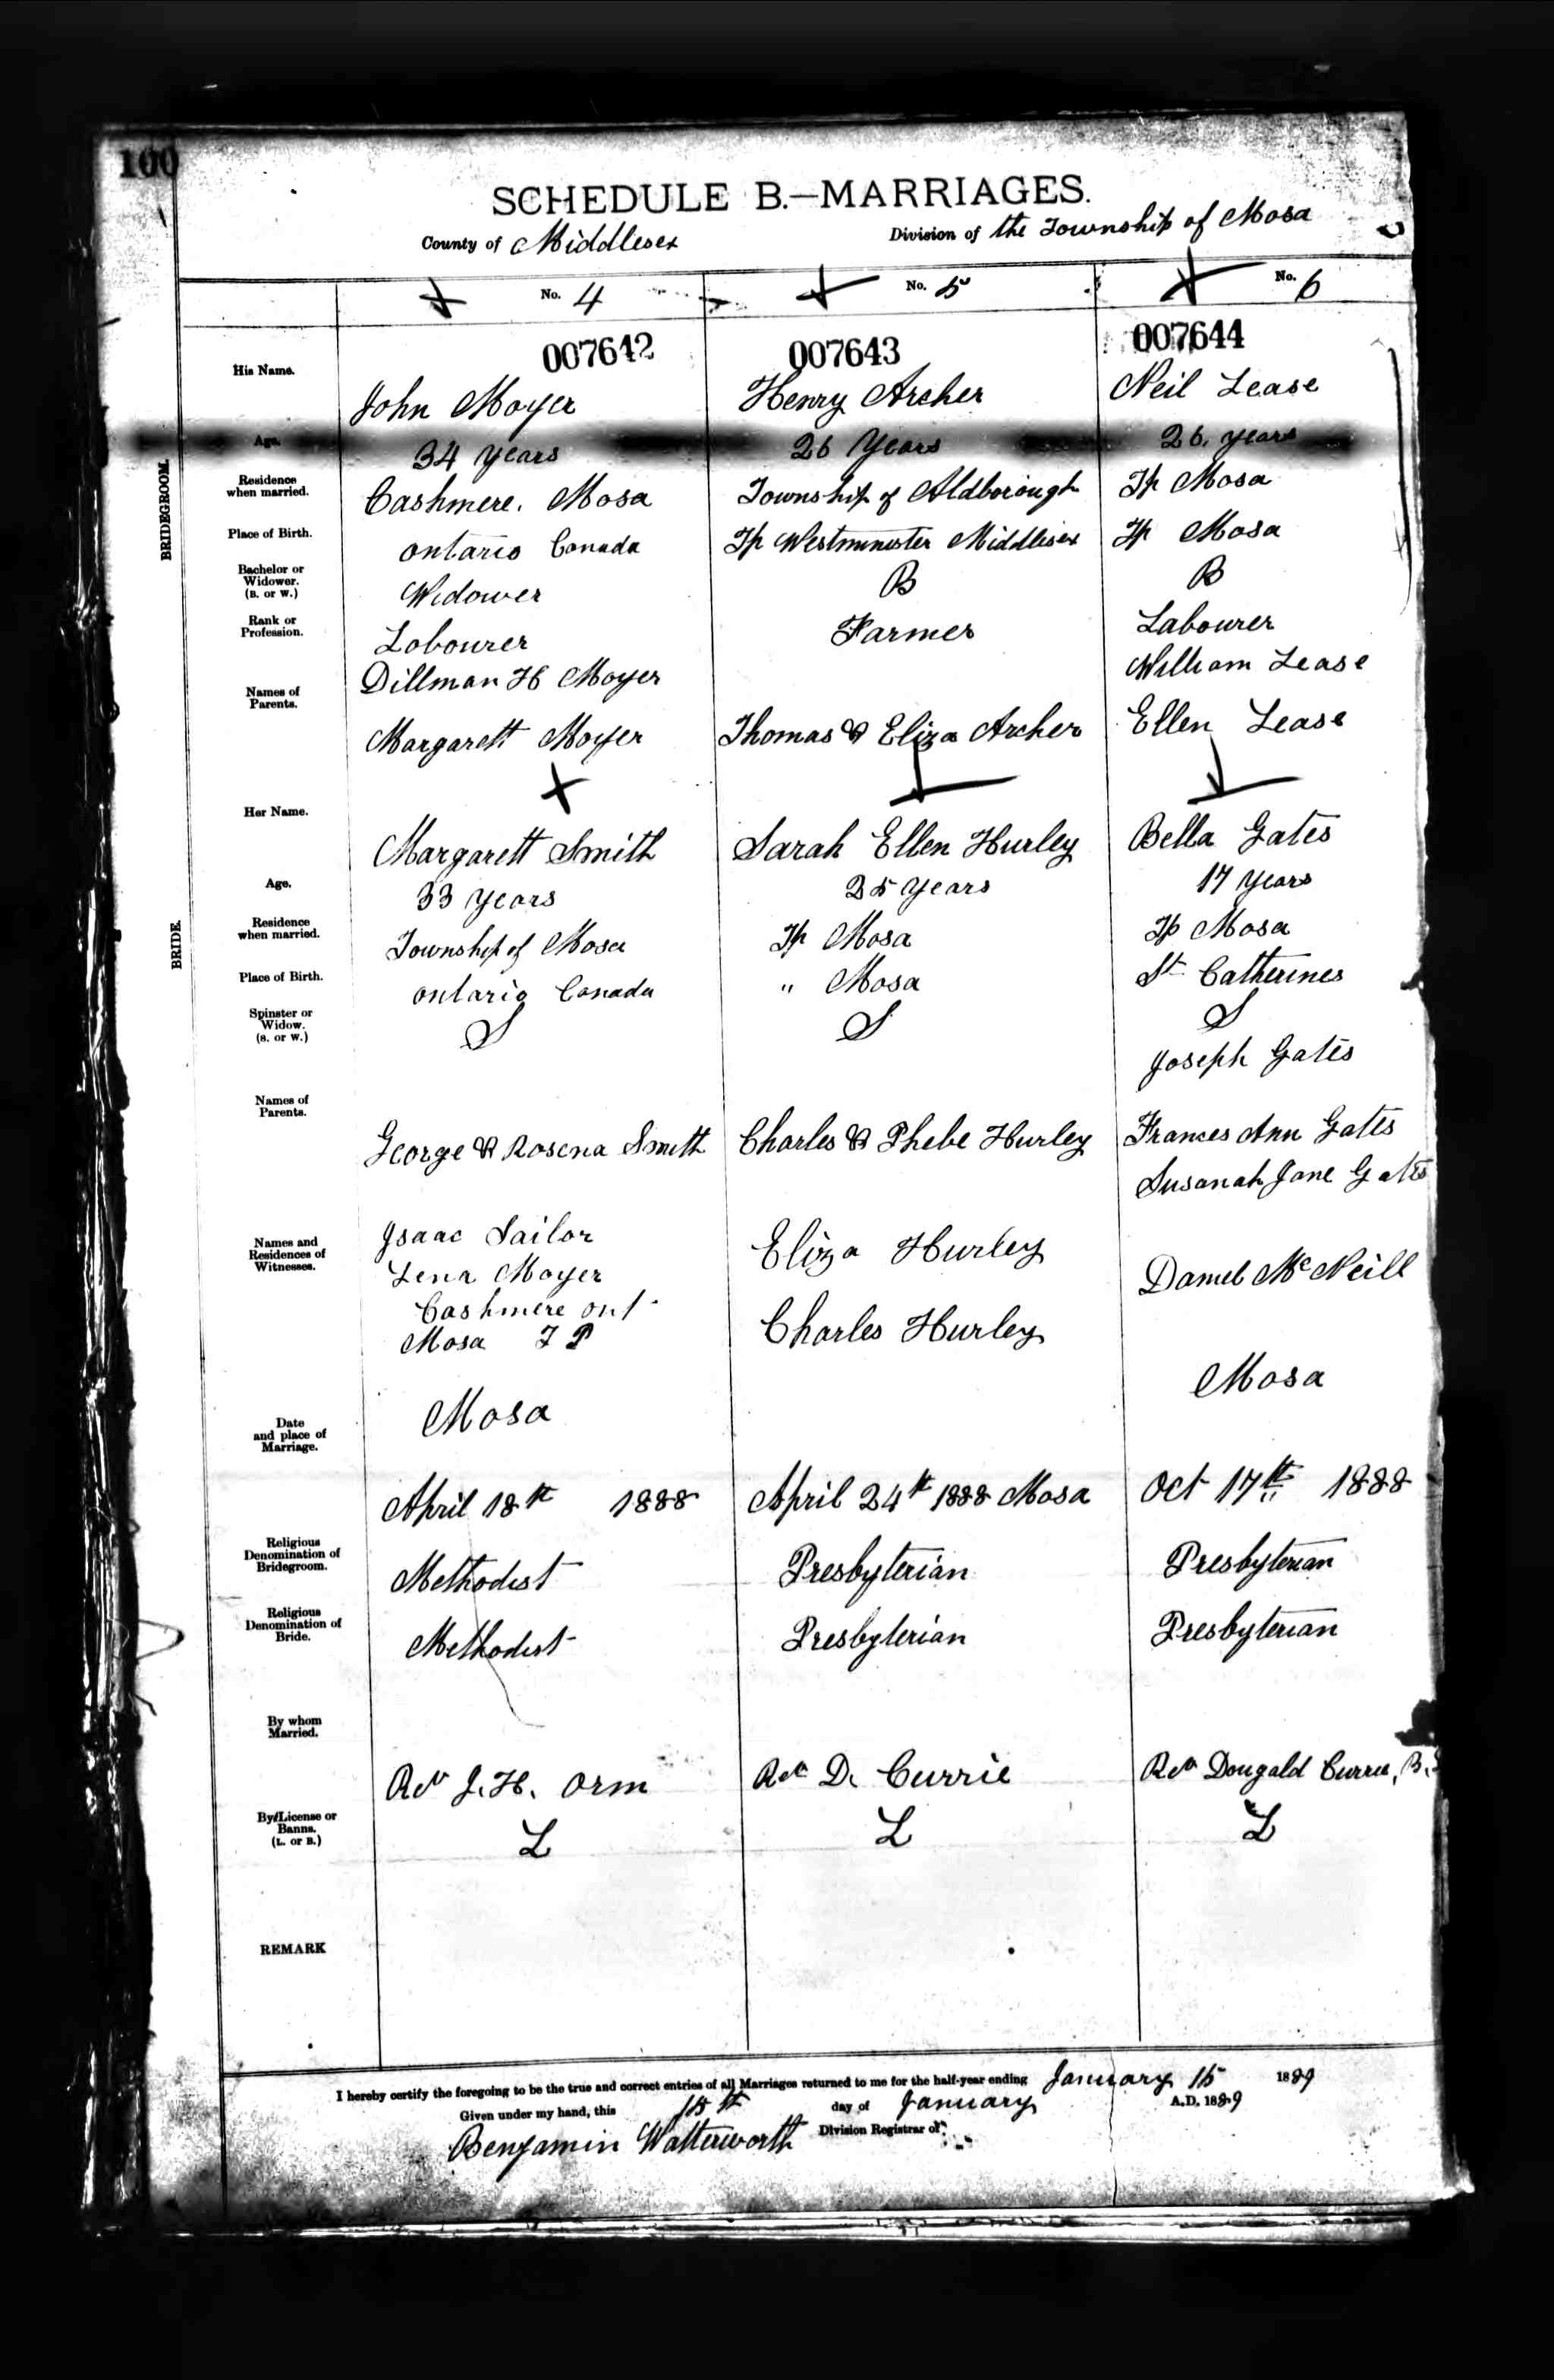 100
SCHEDULE B.—MARRIAGES.
County of Middlesex Division of the Township of Mosa
No. 4 No. 5 No. 6
007642 007643 007644
His Name. John Moyer Henry Archer Neil Lease
Age. 34 years 26 Years 26. years
Residence when married. Cashmere. Mosa Township of Aldborough Tp Mosa
Place of Birth. Ontario Canada Tp Westminister Middlesex Tp Mosa
Bachelor or Widower. (B. or W.) Widower B B
Rank or Profession. Lobourer Farmer Labourer
Names of Parents.
Dillman H Moyer William Lease
Margarett Moyer Thomas & Eliza Archer Ellen Lease
BRIDEGROOM.
Her Name. Margarett Smith Sarah Ellen Hurley Bella Gates
Age. 33 years 25 years 17 years
Residence when married. Township of Mosa Tp Mosa Tp Mosa
Place of Birth. Ontario Canada " Mosa St Catherines
Spinster or Widow. (S. or W.) S S S
Names of Parents.
Joseph Gates
George & Rosena Smith Charles & Phebe Hurley Frances Ann Gates
BRIDE.
Names and Residences of Witnesses.
Susanah Jane Gates
Isaac Sailor Eliza Hurley
Lena Moyer Daniel McNeill
Cashmere Ont
Mosa T P Charles Hurley
Date and place of Marriage.
Mosa Mosa
April 18th 1888 April 24th 1888 Mosa Oct 17th 1888
Religious Denomination of Bridegroom. Methodist Presbyterian Presbyterian
Religious Denomination of Bride. Methodist Presbyterian Presbyterian
By whom Married. Rev J. H. Orm Rev D. Currie Rev Dougald Currie, B.
By License or Banns. (L. or B.) L L L
REMARK
I hereby certify the foregoing to be the true and correct entries of all Marriages returned to me for the half-year ending January 15 1889
Given under my hand, this 15th day of January A.D. 1889
Benjamin Watterworth Division Registrar of